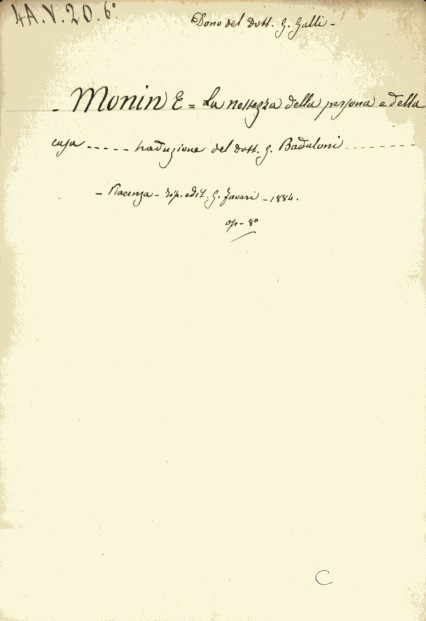 4A.V.20.6°
Dono del dott. G. Galli -
- Monin E = La nettezza della persona e della
casa ..... traduzione del dott. G. Badaloni ........
- Piacenza - tip. edit. G. Favari - 1884.
op - 8°
C